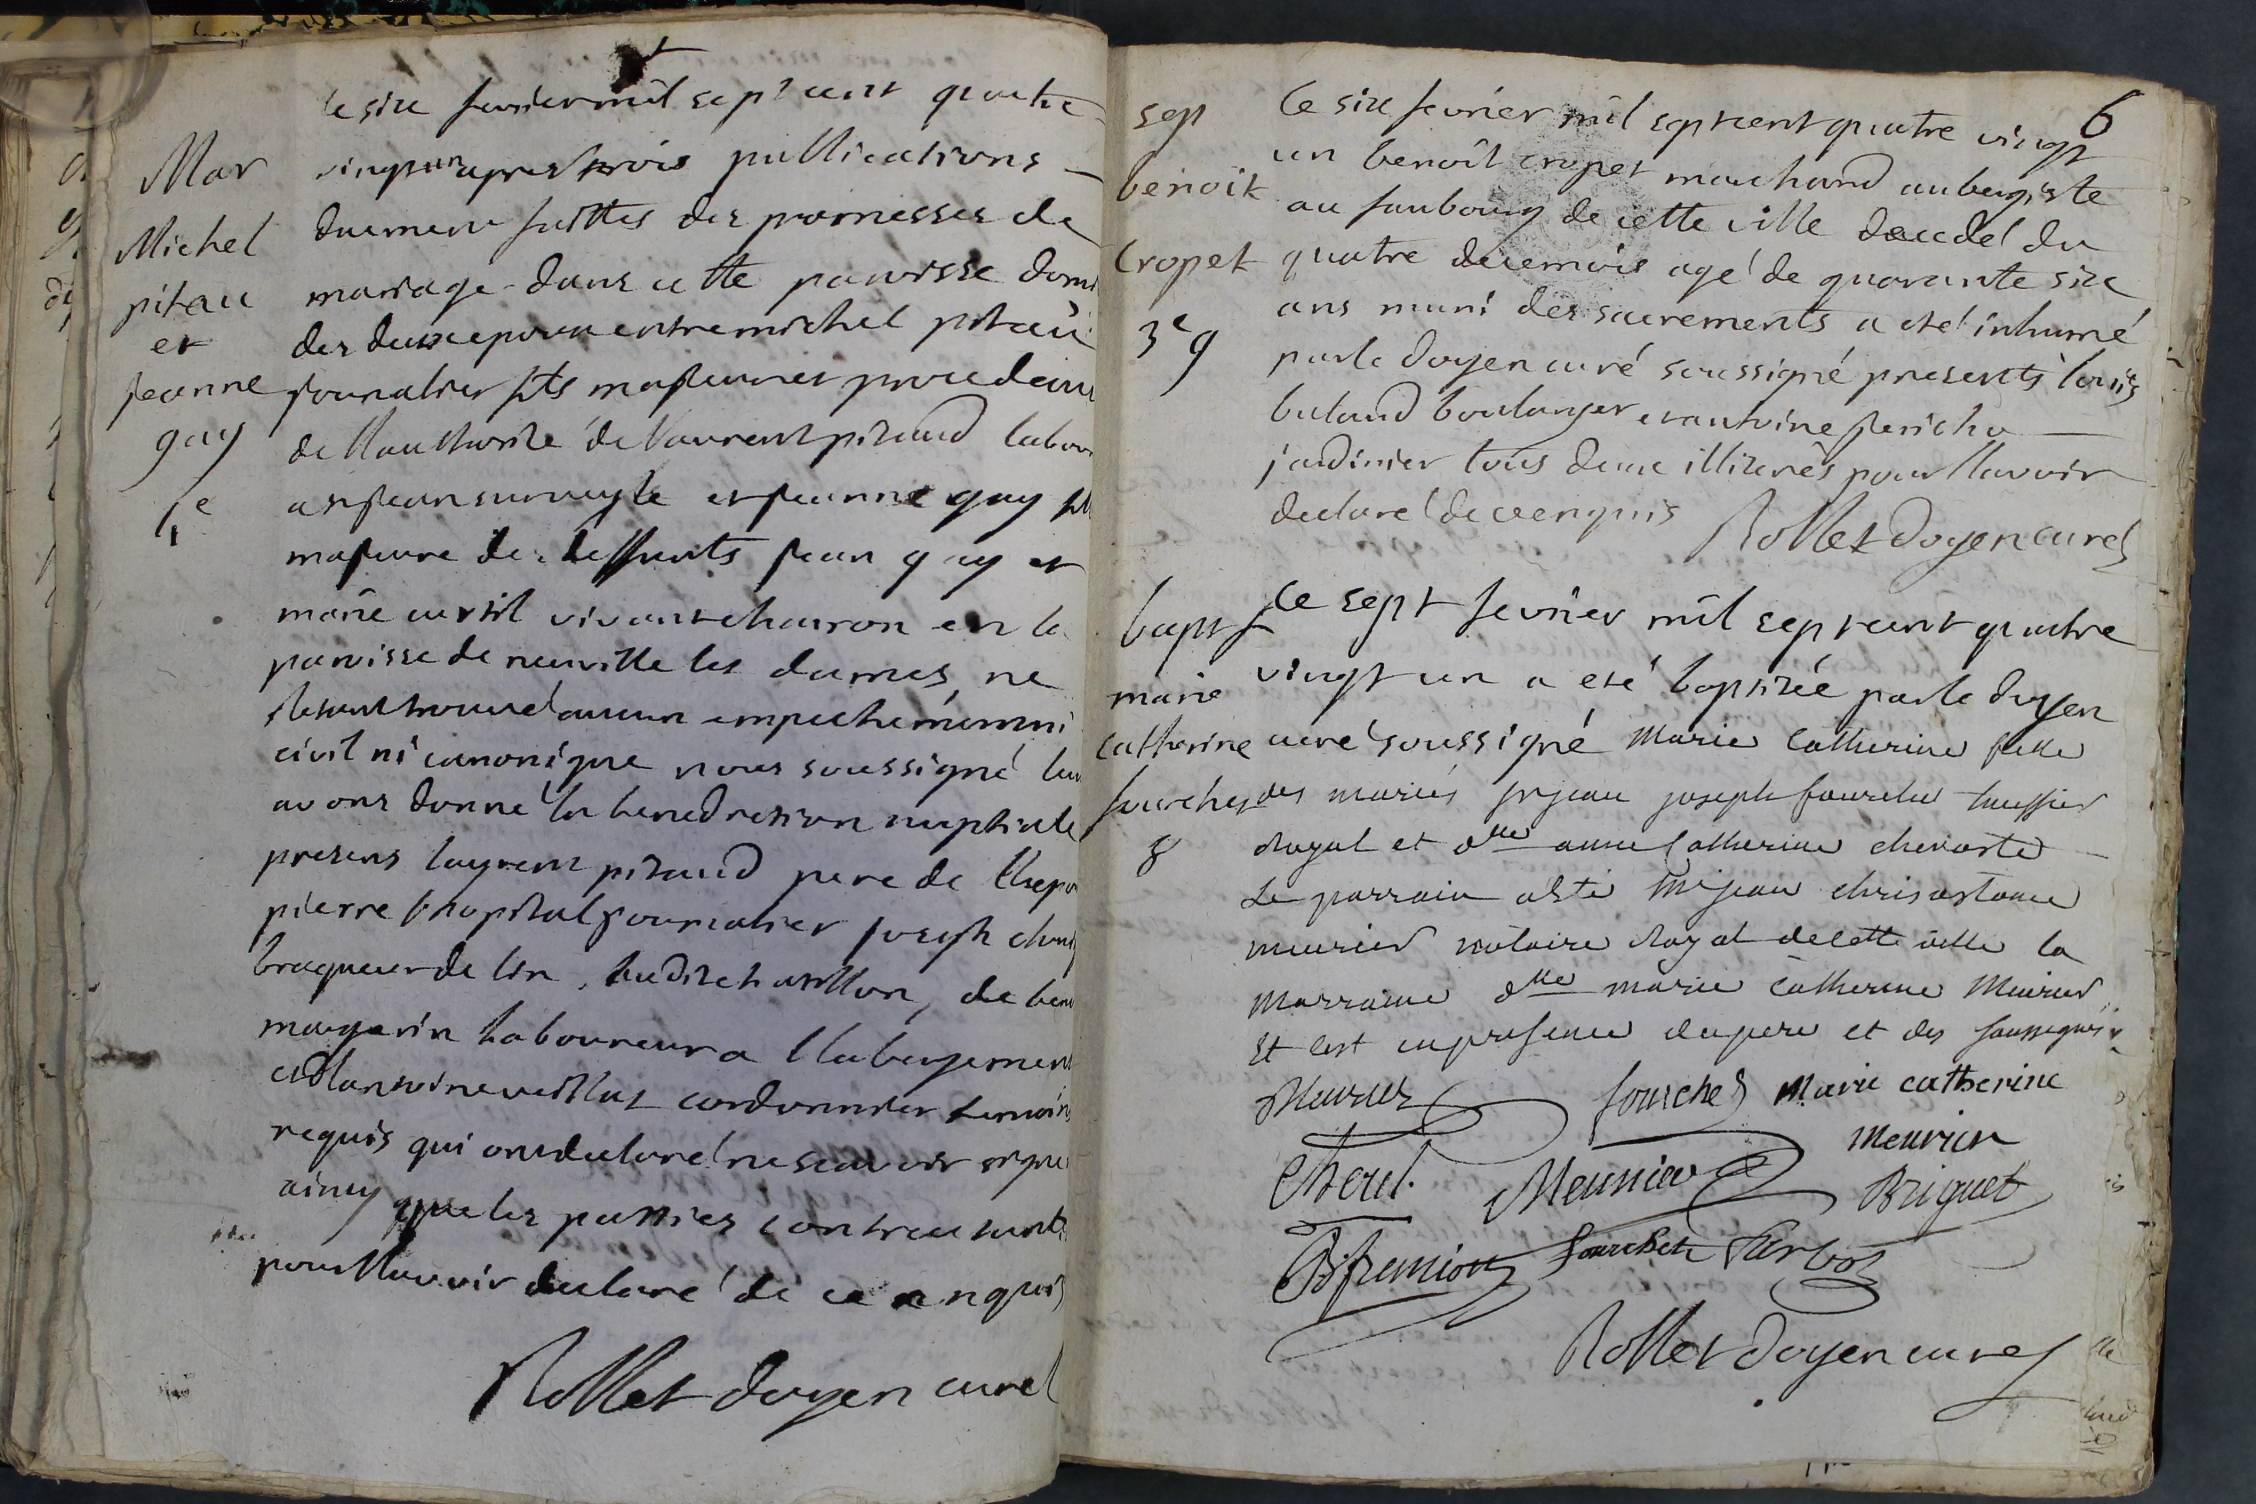 Mar
Michel
pitau
et
jeanne
guy
1e
le six fevrier mil sept cent quatre
vingt un apres trois publications
duement faittes des promesses de
mariage dans cette parroisse domi
des deux epoux entre michel pitau
journalier fils majeur et procedant
de llauthorité de laurent pitaud labou
et jeanne guy fil
majeure de deffunts jean guy et
marie curtil vivant charon en la
parroisse de neuville les dames, ne
setant trouvé aucun empechement ni
civil ni canonique nous soussigné leur
avons donné la benediction nuptiale
presens laurent pitaud pere de llepou
pierre journalier joseph
de lin audit chatillon, de
margerin laboureur a llabergement
et llantoine veillat cordonnier temoins
requis qui ont declaré ne scavoir signer
ainsy que les parties contractantes
pour llavoir declaré de ce enquis
Rollet doyen curé
6
sep
benoit
Cropet
3e g
Ce six fevrier mil sept cent quatre vingt
un benoit cropet marchand aubergiste
au faubourg de cette ville decedé du
quatre de ce mois agé de quarante six
ans muni des sacrements a eté inhumé
par le doyen curé soussigné presents louis
butaud boulanger et antoine jericho
jardinier tous deux illiterés pour llavoir
declaré de ce enquis
Rollet doyen curé
bapt
marie
catherine
fourchez
8
Ce sept fevrier mil sept cent quatre
vingt un a eté baptisée par le doyen
curé soussigné Marie Catherine fille
des mariés sr jean joseph fourcher huissier
Royal et dlle anne Catherine
Le parrain a été Me jean chrisostome
meurier notaire Royal de cette ville la
Marraine dlle marie Catherine Meurier
Et cest en presence du pere et des soussignés
Meurier fourchez Marie catherine
meurier
Cherel. Meunier Briguet
fourchet
Rollet doyen curé